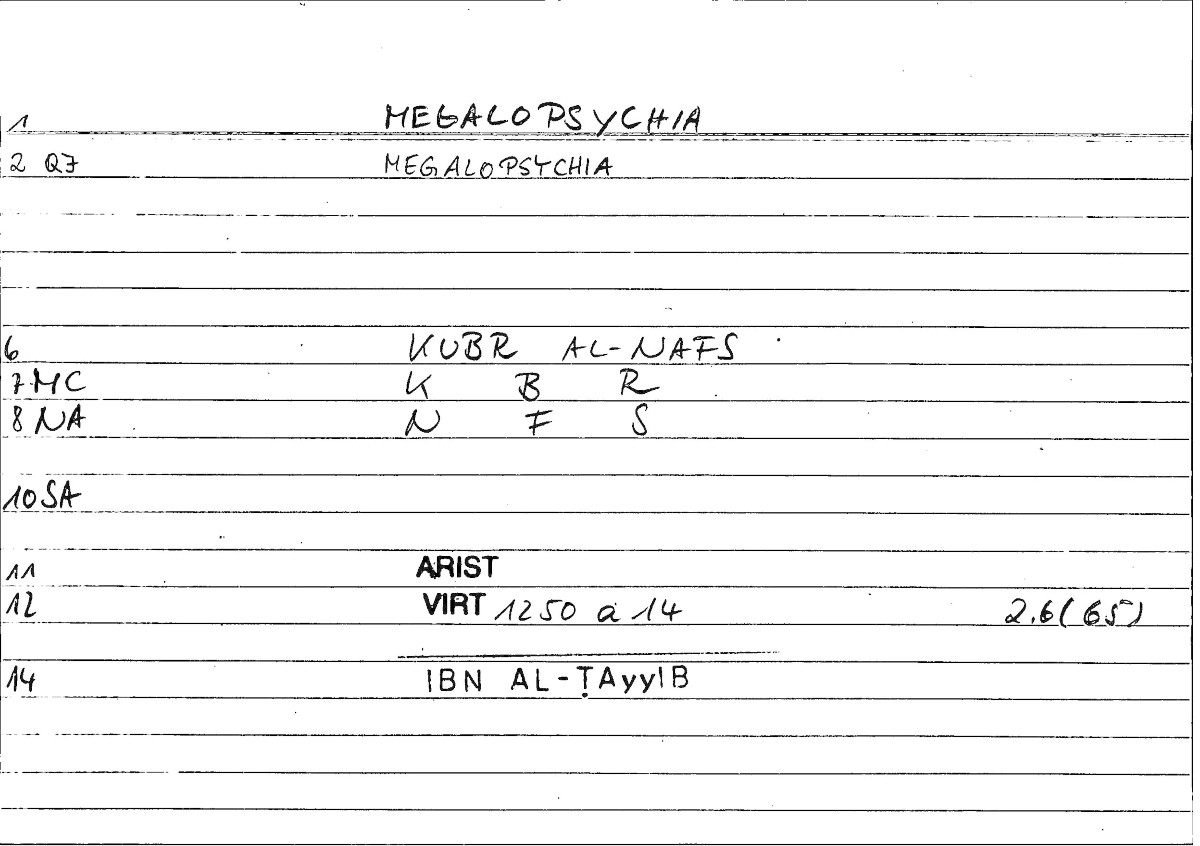 1 MEGALOPSYCHIA
2 Q7 MEGALOPSYCHIA
6 KUBR AL-NAFS
7 MC K B R
8 NA N F S
10 SA
11 ARIST
12 VIRT 1250 a 14 2.6(65)
14 IBN AL-ṬAyyIB